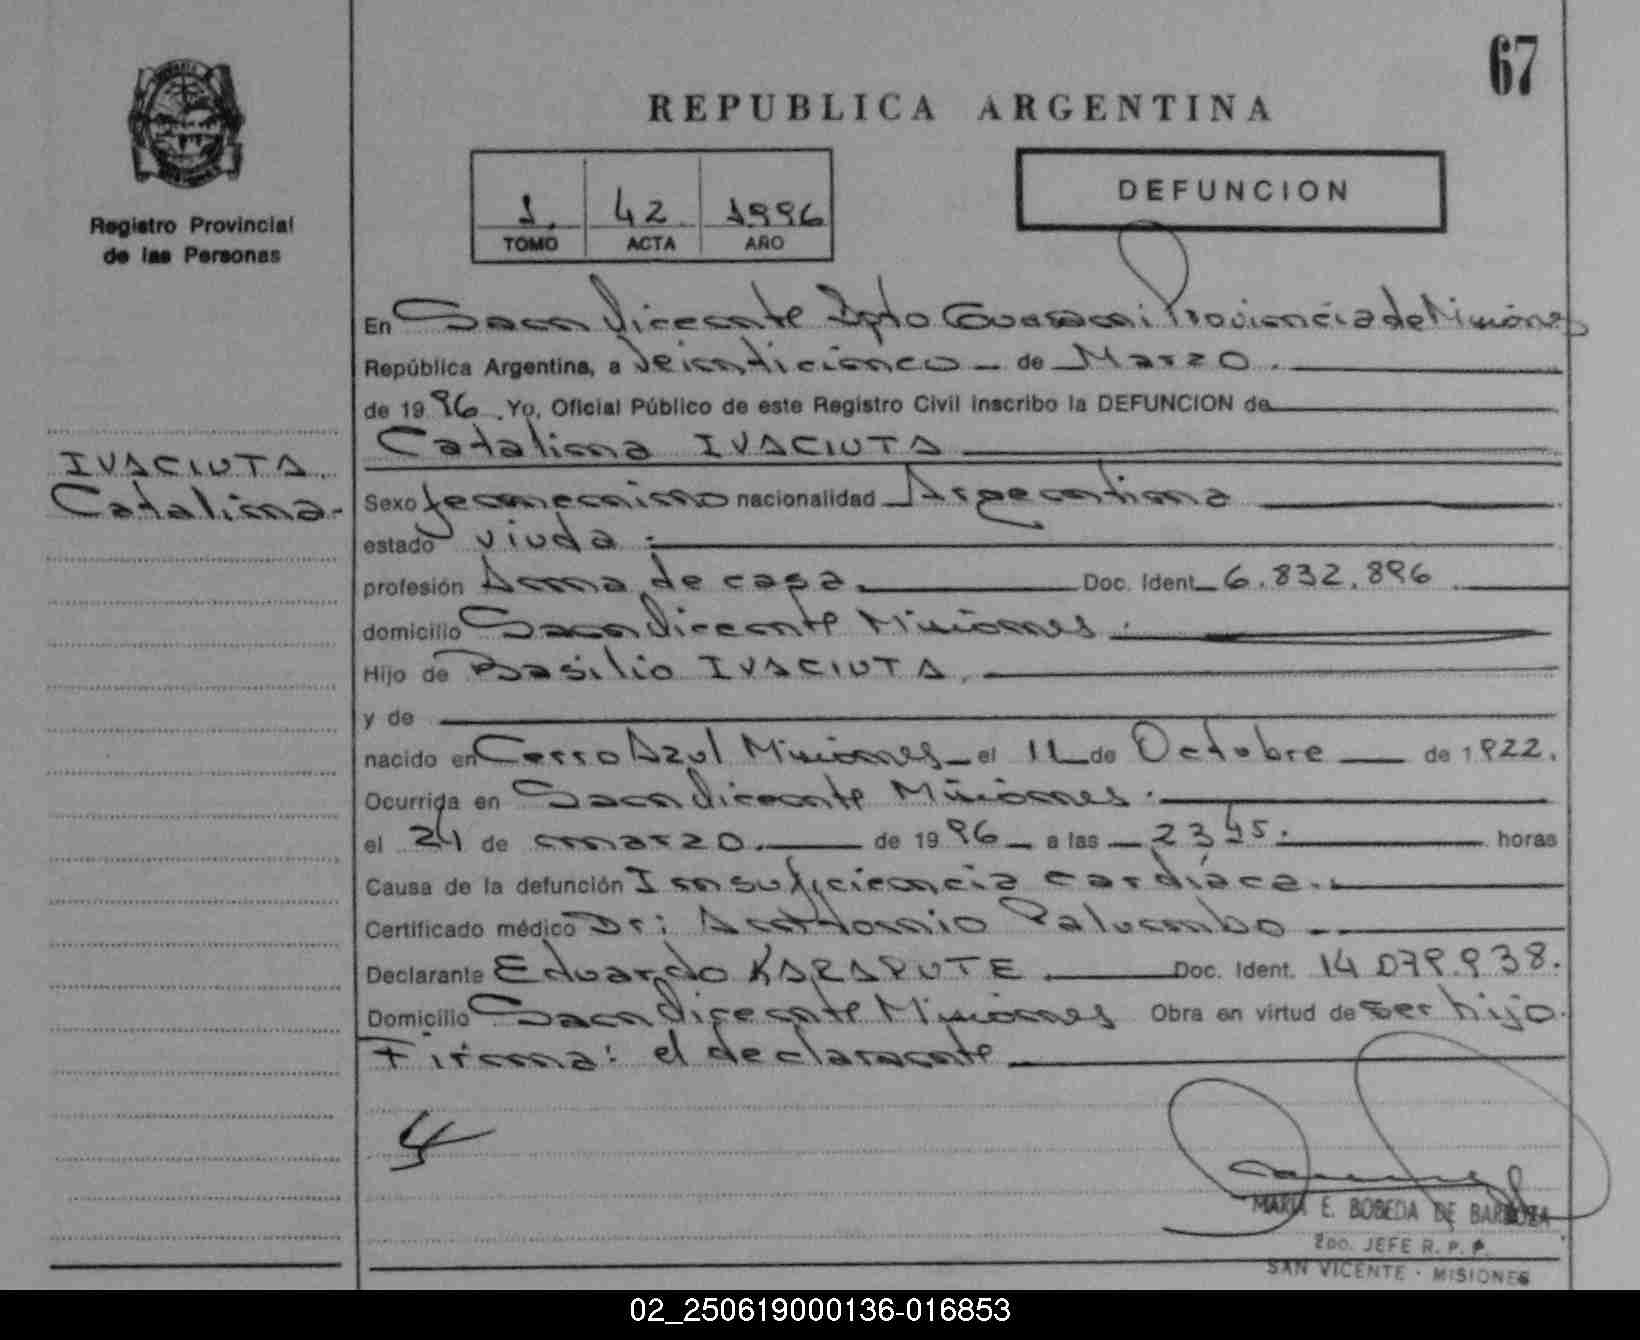 67
REPUBLICA ARGENTINA
Registro Provincial
de las Personas
1. 42 1996
TOMO ACTA AÑO
DEFUNCION
En San Vicente Dpto Guarani Provincia de Misiones
República Argentina, a Veinticinco de Marzo.
de 1996. Yo, Oficial Público de este Registro Civil inscribo la DEFUNCION de
Catalina IVACIUTA
IVACIUTA
Catalina-
Sexo femenino nacionalidad Argentina
estado viuda.
profesión Ama de casa. Doc. Ident 6.832.896
domicilio San Vicente Misiones.
Hijo de Basilio IVACIUTA.
y de
nacido en Cerro Azul Misiones el 11 de Octubre de 1922.
Ocurrida en San Vicente Misiones.
el 24 de marzo. de 1996 a las 23 45. horas
Causa de la defunción Insuficiencia cardíaca.
Certificado médico Dr: Antonio Palumbo
Declarante Eduardo KARAPUTE Doc. Ident. 14.079.938.
Domicilio San Vicente Misiones Obra en virtud de ser hijo.
Firma: el declarante
MARIA E. BOBEDA DE BARBOZA
2DO. JEFE R. P. P.
SAN VICENTE - MISIONES
02_250619000136-016853